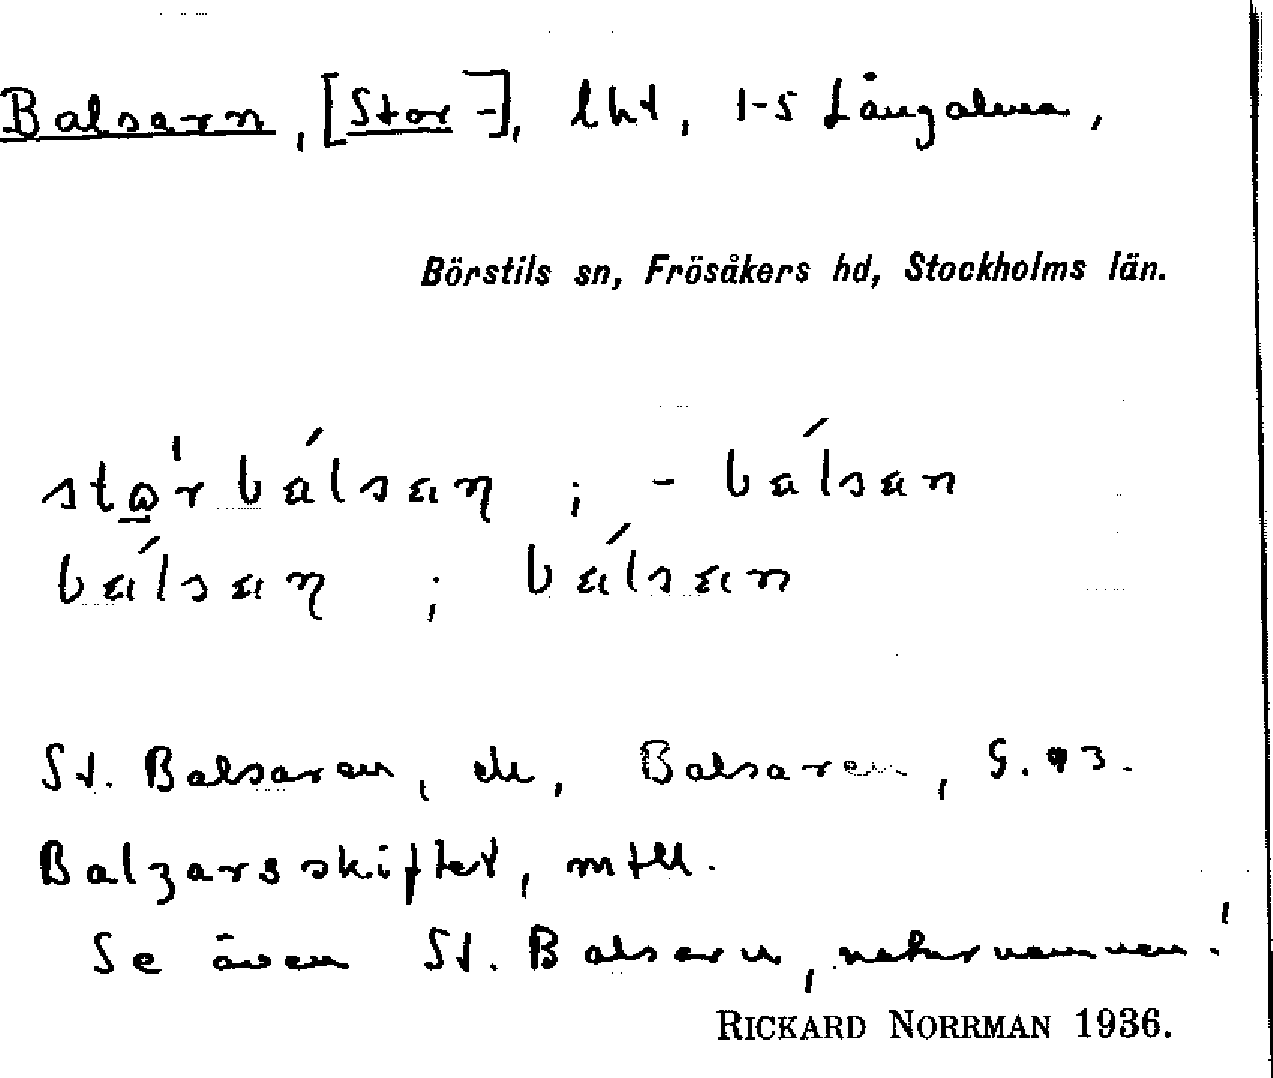 Balsarn, [Stor-], lht, 1-5 Långalma,
Börstils sn, Frösåkers hd, Stockholms län.
stor bálsaɳ ; - bálsan
bálsaɳ ; bálsan
St. Balsaren, de, Balsaren, G. 93.
Balzarsskiftet, mtll.
Se även St. Balsarn, naturnamnen!
RICKARD NORRMAN 1936.